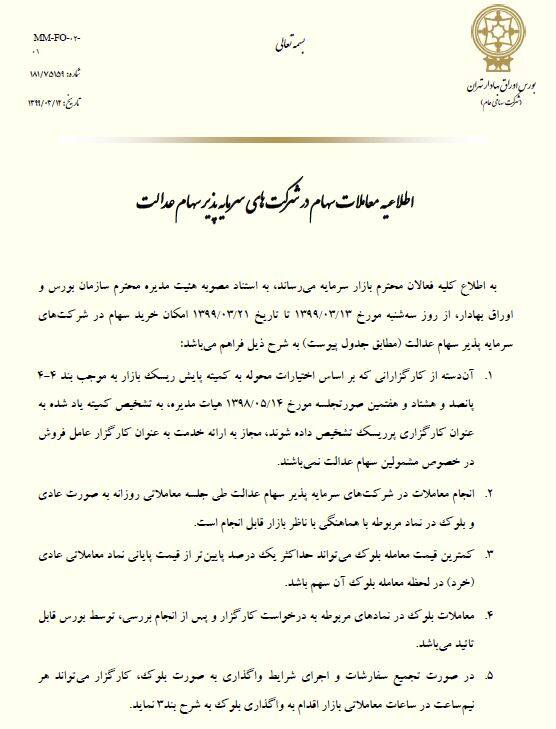 MM-FO-۰۲-
۰۱
شماره: ۱۸۱/۷۵۱۵۹
تاریخ: ۱۳۹۹/۰۳/۱۲
بسمه تعالی
بورس اوراق بهادار تهران
(شرکت سهامی عام)
اطلاعیه معاملات سهام در شرکت های سرمایه پذیر سهام عدالت
به اطلاع کلیه فعالان محترم بازار سرمایه می‌رساند، به استناد مصوبه هئیت مدیره محترم سازمان بورس و
اوراق بهادار، از روز سه‌شنبه مورخ ۱۳۹۹/۰۳/۱۳ تا تاریخ ۱۳۹۹/۰۳/۲۱ امکان خرید سهام در شرکت‌های
سرمایه پذیر سهام عدالت (مطابق جدول پیوست) به شرح ذیل فراهم می‌باشد:
۱. آن‌دسته از کارگزارانی که بر اساس اختیارات محوله به کمیته پایش ریسک بازار به موجب بند ۴-۴
پانصد و هشتاد و هفتمین صورتجلسه مورخ ۱۳۹۸/۰۵/۱۴ هیات مدیره، به تشخیص کمیته یاد شده به
عنوان کارگزاری پرریسک تشخیص داده شوند، مجاز به ارائه خدمت به عنوان کارگزار عامل فروش
در خصوص مشمولین سهام عدالت نمی‌باشند.
۲. انجام معاملات در شرکت‌های سرمایه پذیر سهام عدالت طی جلسه معاملاتی روزانه به صورت عادی
و بلوک در نماد مربوطه با هماهنگی با ناظر بازار قابل انجام است.
۳. کمترین قیمت معامله بلوک می‌تواند حداکثر یک درصد پایین‌تر از قیمت پایانی نماد معاملاتی عادی
(خرد) در لحظه معامله بلوک آن سهم باشد.
۴. معاملات بلوک در نمادهای مربوطه به درخواست کارگزار و پس از انجام بررسی، توسط بورس قابل
تائید می‌باشد.
۵. در صورت تجمیع سفارشات و اجرای شرایط واگذاری به صورت بلوک، کارگزار می‌تواند هر
نیم‌ساعت در ساعات معاملاتی بازار اقدام به واگذاری بلوک به شرح بند۳ نماید.